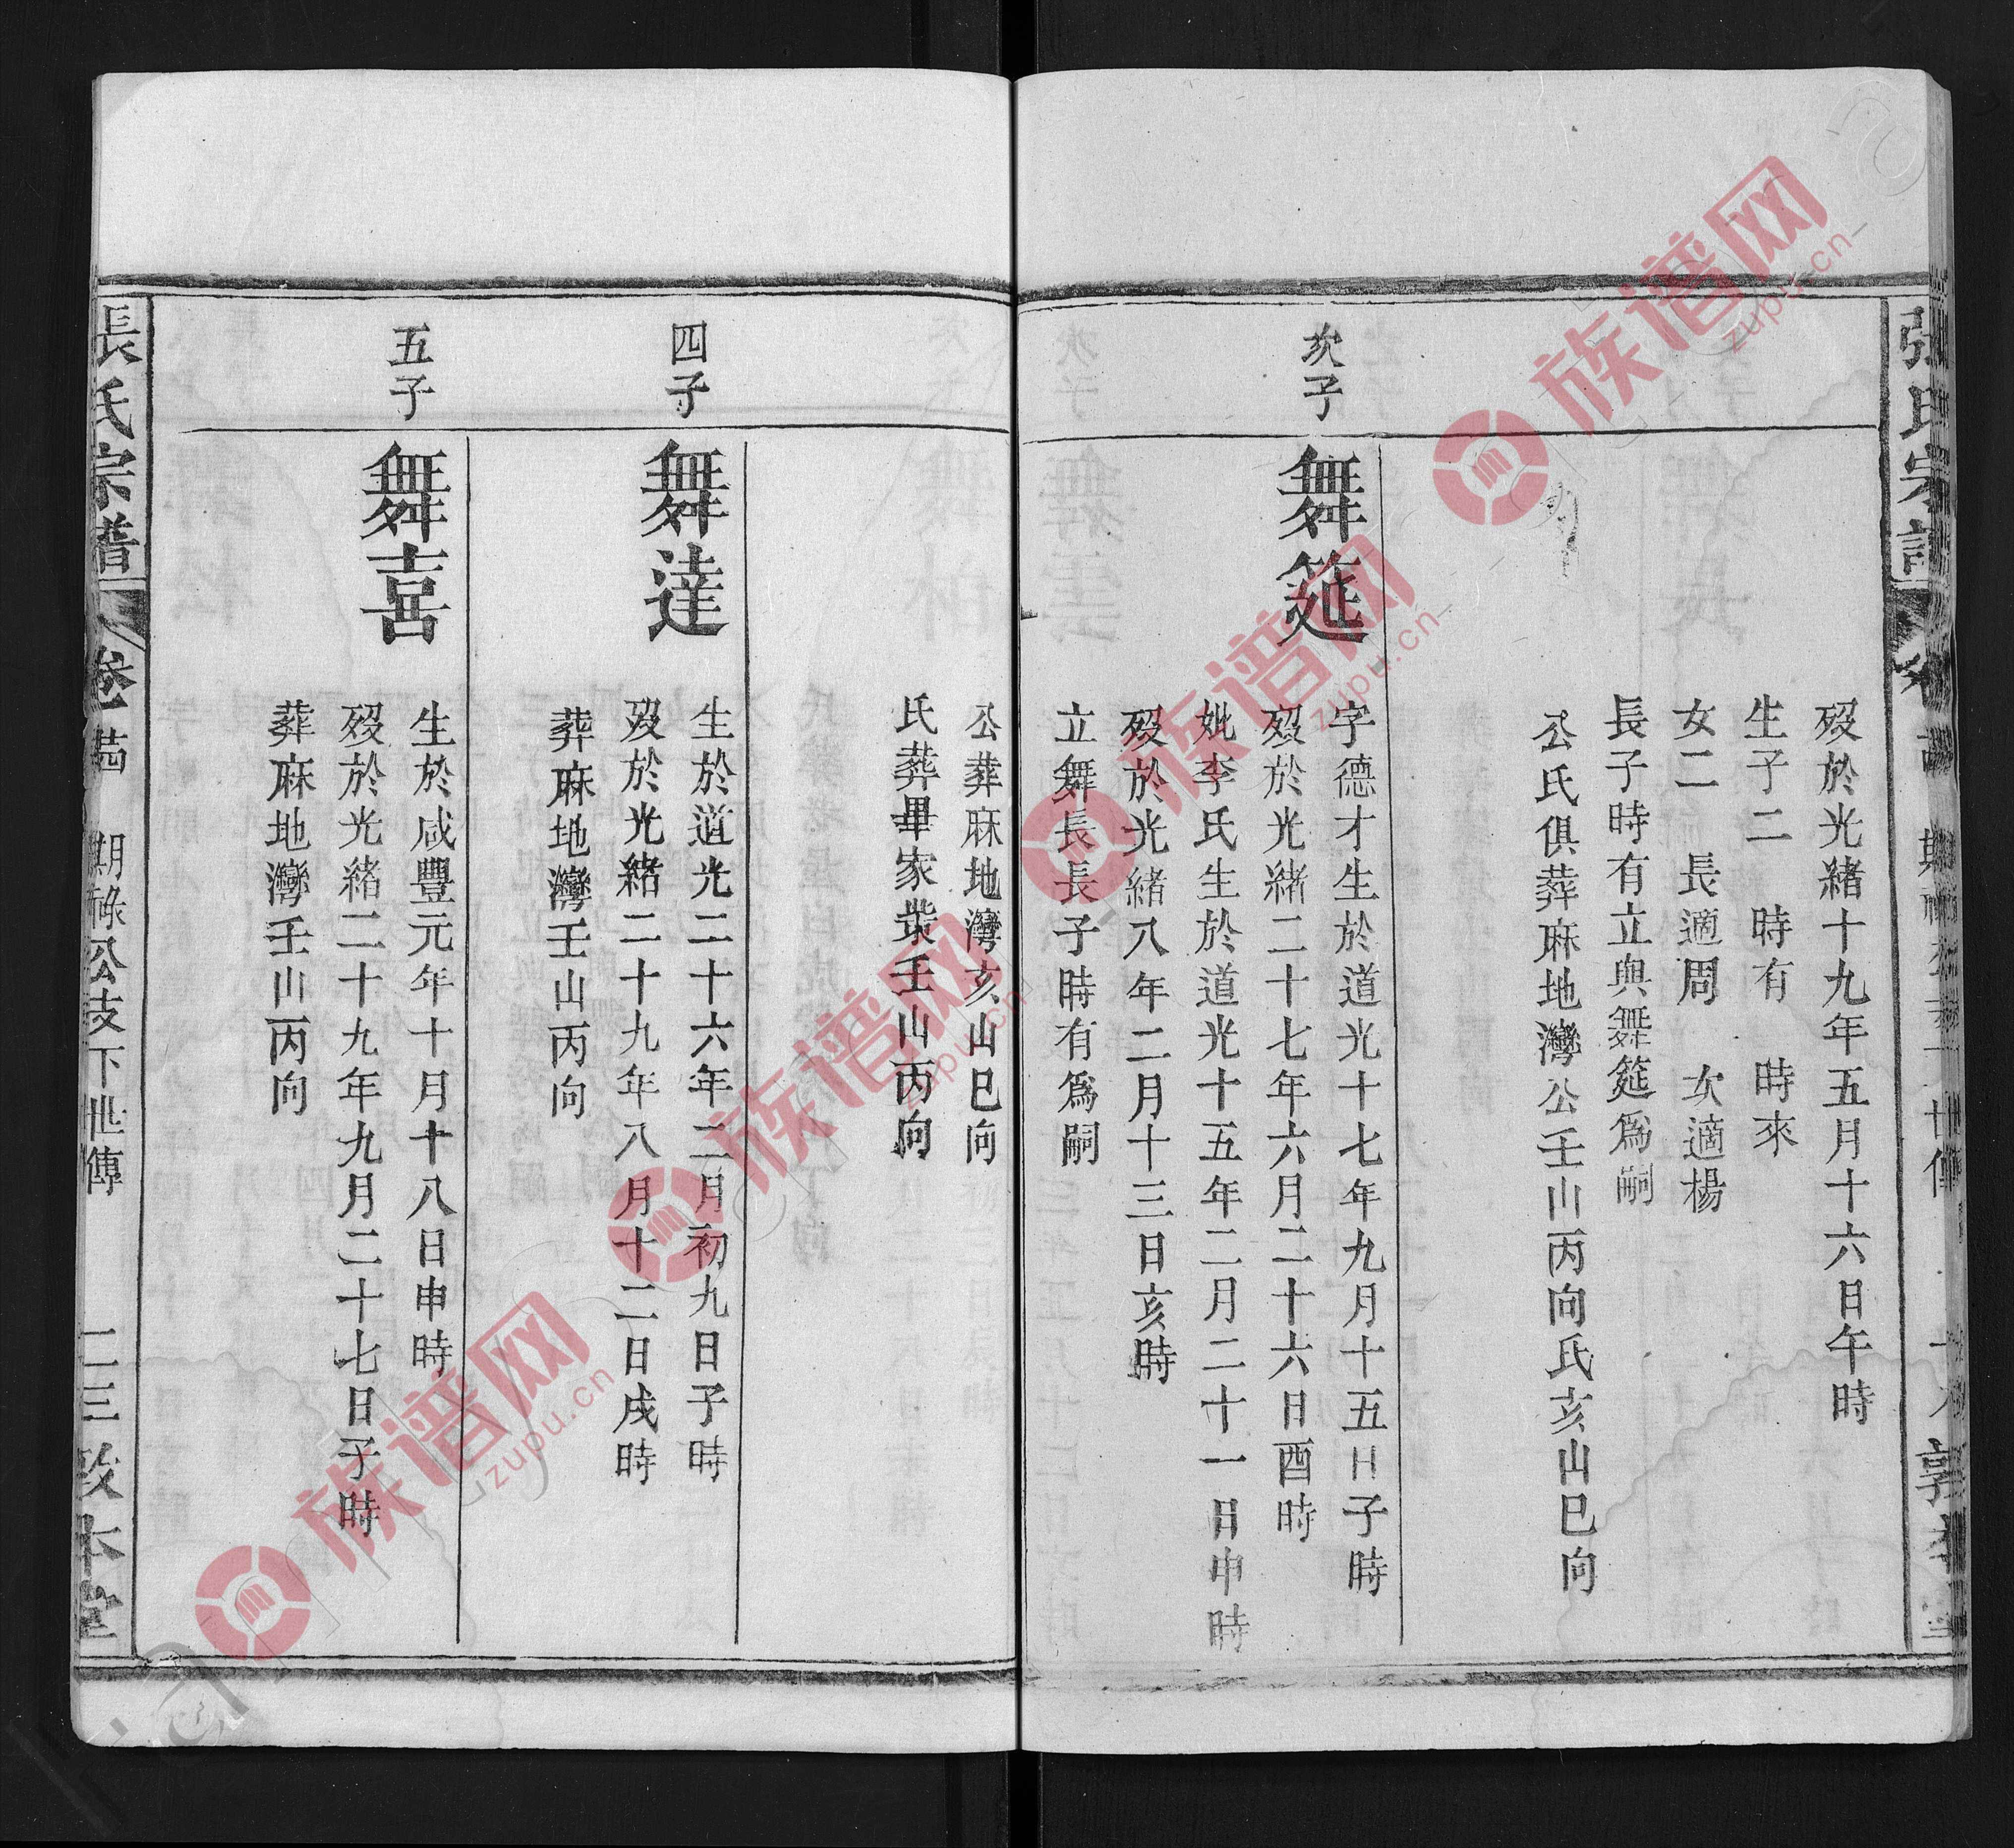 張氏宗譜
歿於光緒十九年五月十六日午時
生子二　時有　時來
女二　長適周　次適楊
長子時有立與舞筵為嗣
公氏俱葬麻地灣公壬山丙向氏亥山巳向
次子
舞筵
字德才生於道光十七年九月十五日子時
歿於光緒二十七年六月二十六日酉時
妣李氏生於道光十五年二月二十一日申時
歿於光緒八年二月十三日亥時
立舞長長子時有為嗣
公葬麻地灣亥山巳向
氏葬畢家業壬山丙向
四子
舞達
生於道光二十六年二月初九日子時
歿於光緒二十九年八月十二日戌時
葬麻地灣壬山丙向
五子
舞喜
生於咸豐元年十月十八日申時
歿於光緒二十九年九月二十七日子時
葬麻地灣壬山丙向
長氏宗譜　卷　期祿公支下世傳　二三　敦本堂
族谱网
zupu.cn
族谱网
zupu.cn
族谱网
zupu.cn
族谱网
zupu.cn